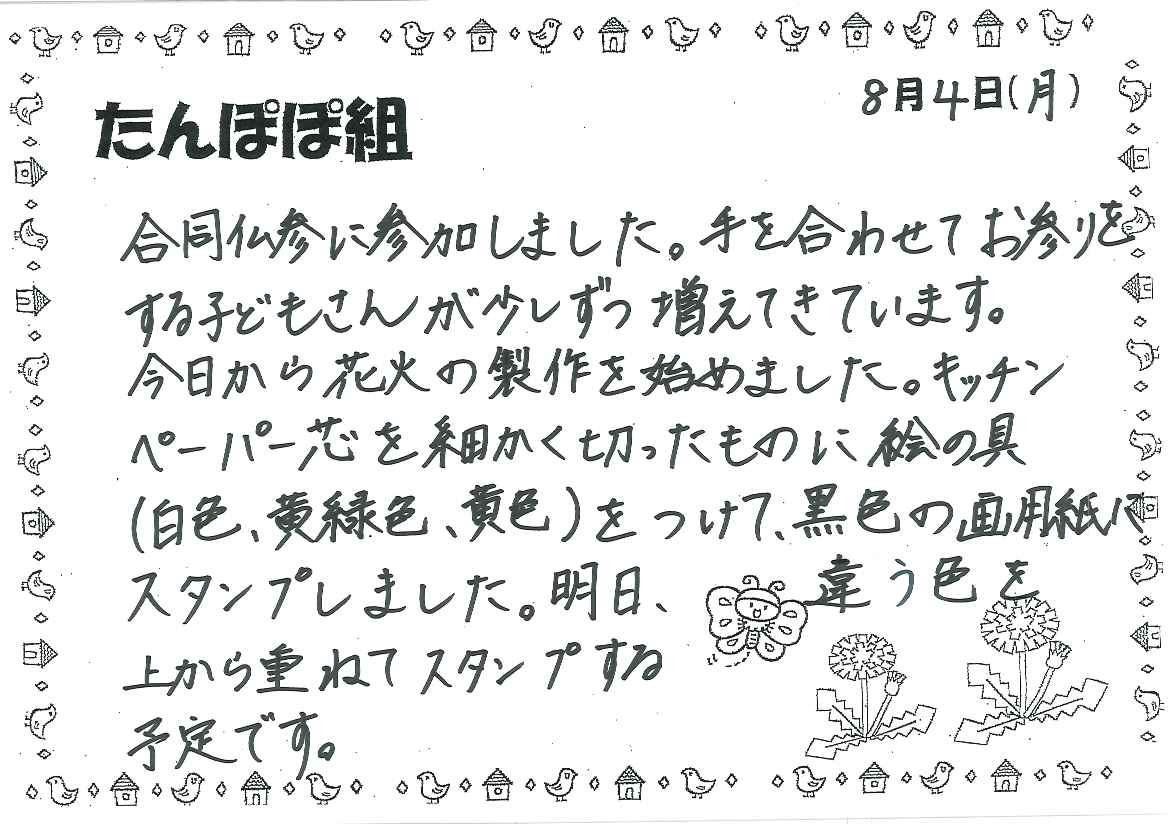 たんぽぽ組
8月4日(月)
合同仏参に参加しました。手を合わせてお参りを
する子どもさんが少しずつ増えてきています。
今日から花火の製作を始めました。キッチン
ペーパー芯を細かく切ったものに絵の具
(白色、黄緑色、黄色)をつけて、黒色の画用紙に
スタンプしました。明日、違う色を
上から重ねてスタンプする
予定です。